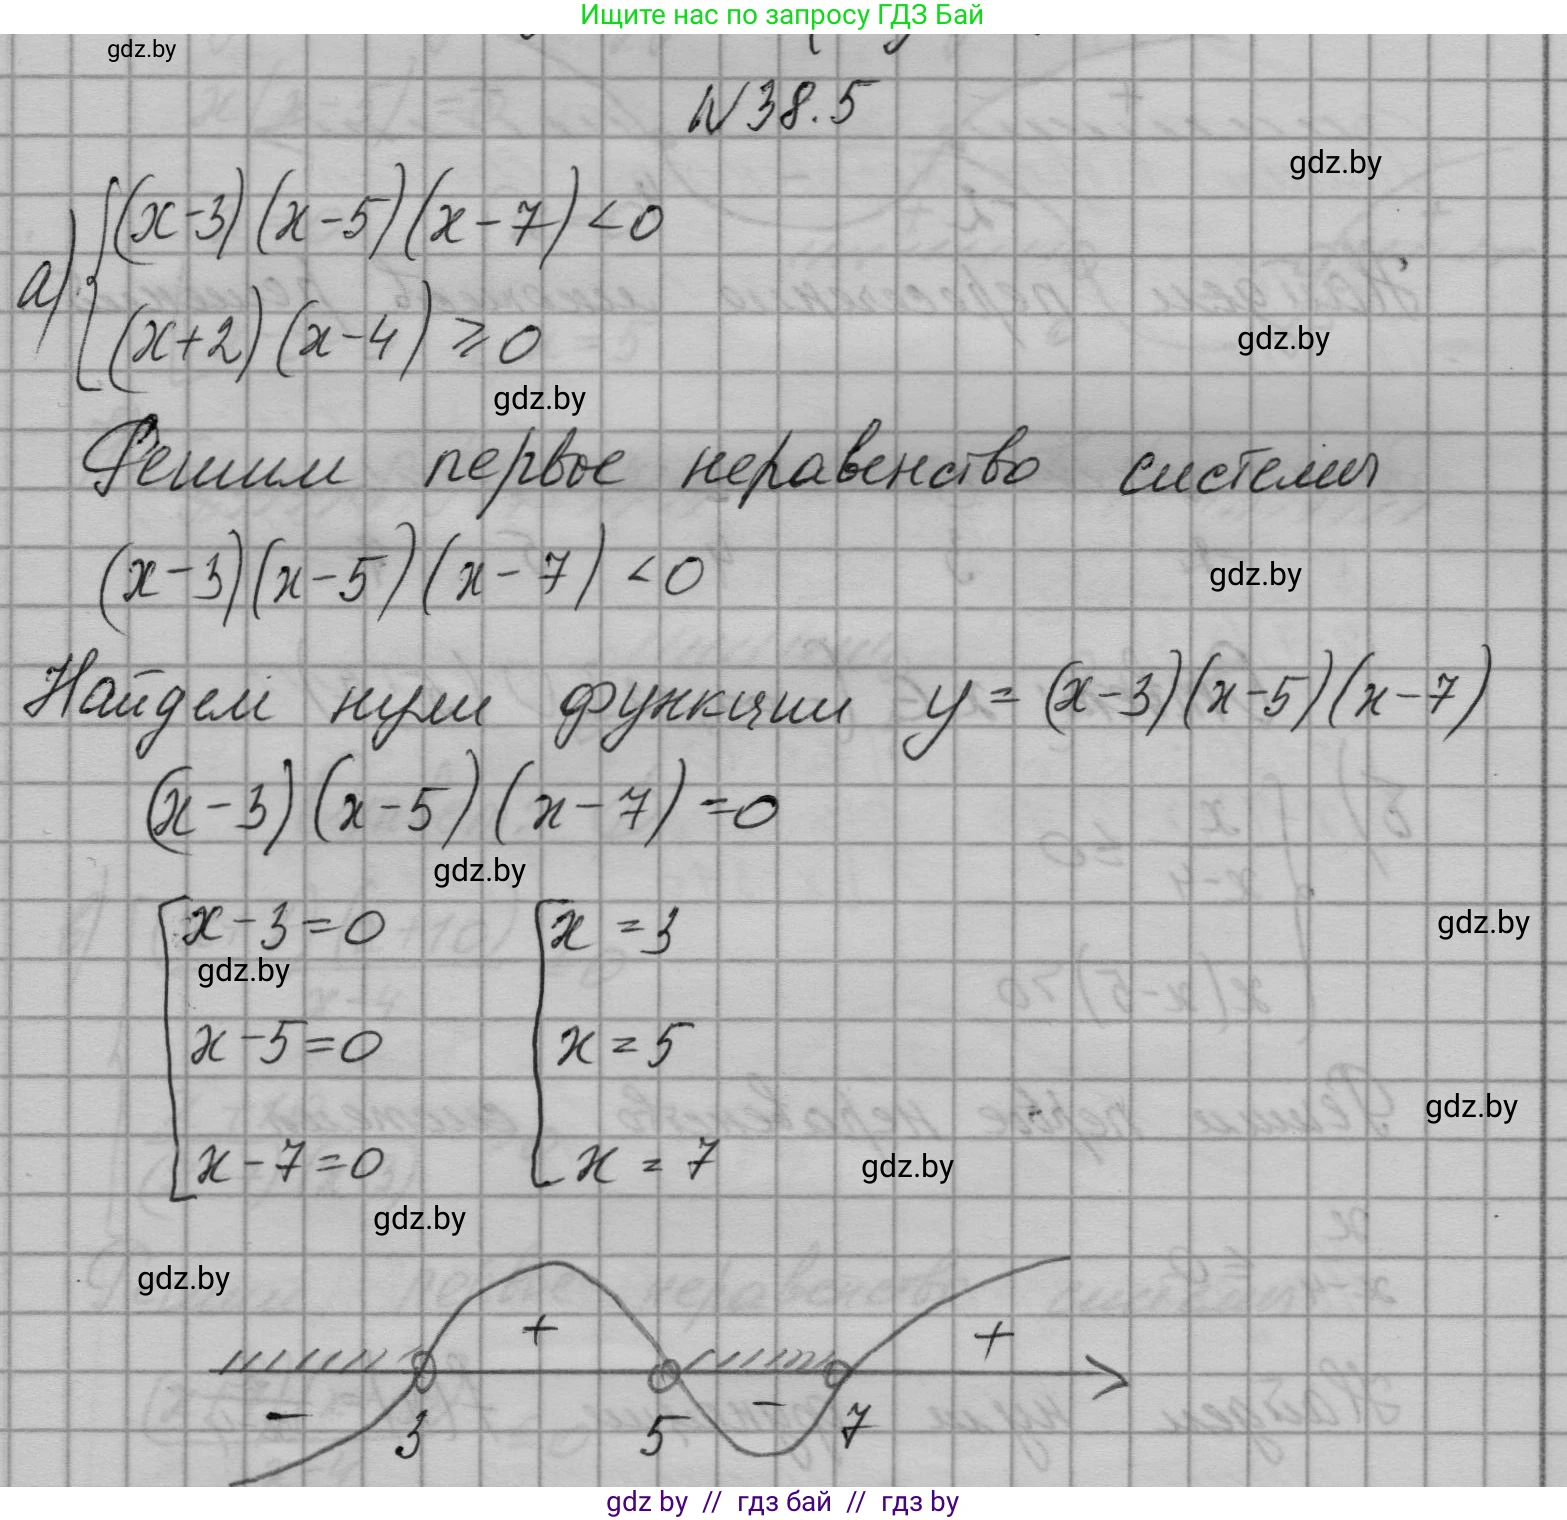 Ищите нас по запросу ГДЗ Бай
gdz.by
N38.5
gdz.by
а) { (x-3)(x-5)(x-7)<0
(x+2)(x-4)≥0
gdz.by
gdz.by
Решим первое неравенство системы
(x-3)(x-5)(x-7)<0
gdz.by
Найдем нули функции y=(x-3)(x-5)(x-7)
(x-3)(x-5)(x-7)=0
gdz.by
[ x-3=0 [ x=3
gdz.by
gdz.by
x-5=0 x=5
gdz.by
x-7=0 x=7
gdz.by
gdz.by
gdz.by
+ +
- 3 5 - 7
gdz by // гдз бай // гдз by